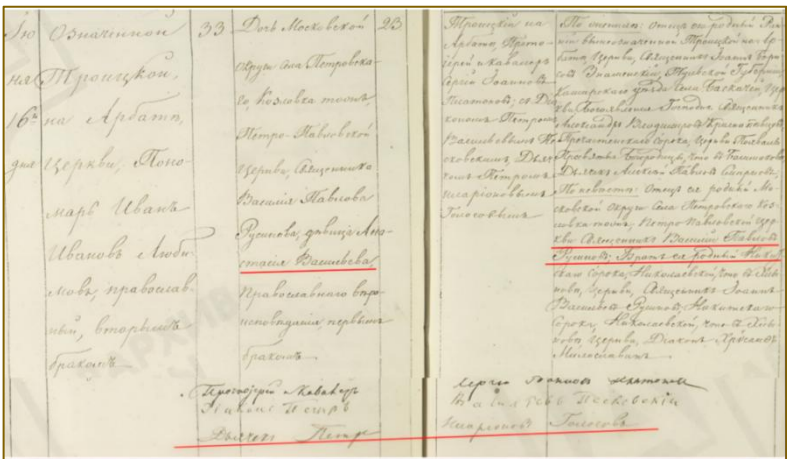 Ию
ня
16го
дня
Означенной
Троицкой,
на Арбатѣ,
церкви, Поно-
марь Иванъ
Ивановъ Люби-
мовъ, православ-
ный, вторымъ
бракомъ
33
Дочь Московской
округи села Петровска-
го, Козловка тожъ,
Петро-Павловской
церкви, Священника
Василія Павлова
Русинова, дѣвица Ана-
стасія Васильева,
Православнаго вѣро-
исповѣданія, первымъ
бракомъ
23
Троицкій на
Арбатѣ, Прото-
іерей и кавалеръ
Сергій Іоанновъ
Платоновъ; съ Діа-
кономъ Петромъ
Васильевымъ
Дьяч-
комъ Петромъ
Иларіоновымъ
Голосовымъ
По женихѣ: отецъ его родный
вышеозначенной Троицкой на Ар-
батѣ церкви, Священникъ Іоаннъ
Знаменскій, Тульской Губерніи,
Каширскаго уѣзда села
Богоявленія Господня Священникъ
Александръ
Пречистенскаго сорока, церкви Похвалы
Пресвятыя Богородицы, что въ Башмаковѣ,
Дьячекъ Алексѣй Павловъ
По невѣстѣ: отецъ ея родный Мо-
сковской округи села Петровскаго Коз-
ловка тожъ, Петро-Павловской цер-
кви Священникъ Василій Павловъ
Русиновъ; Братъ ея родный Никит-
скаго сорока, Николаевской, что въ Хлы-
новѣ, церкви, Священникъ Іоаннъ
Васильевъ Русиновъ, Никитскаго
сорока, Николаевской, что въ Хлы-
новѣ, церкви, Діаконъ
Милославинъ
Протоіерей Кавалеръ Сергій Іоанновъ Платоновъ
Діаконъ Петръ Васильевъ
Дьячекъ Петръ Иларіоновъ Голосовъ